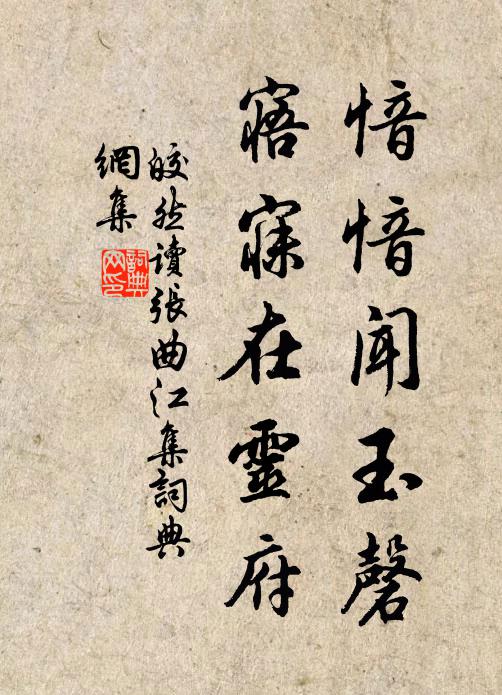 愔愔聞玉磬
寤寐在靈府
皎然讀張曲江集詞典
網集
詞典
网印